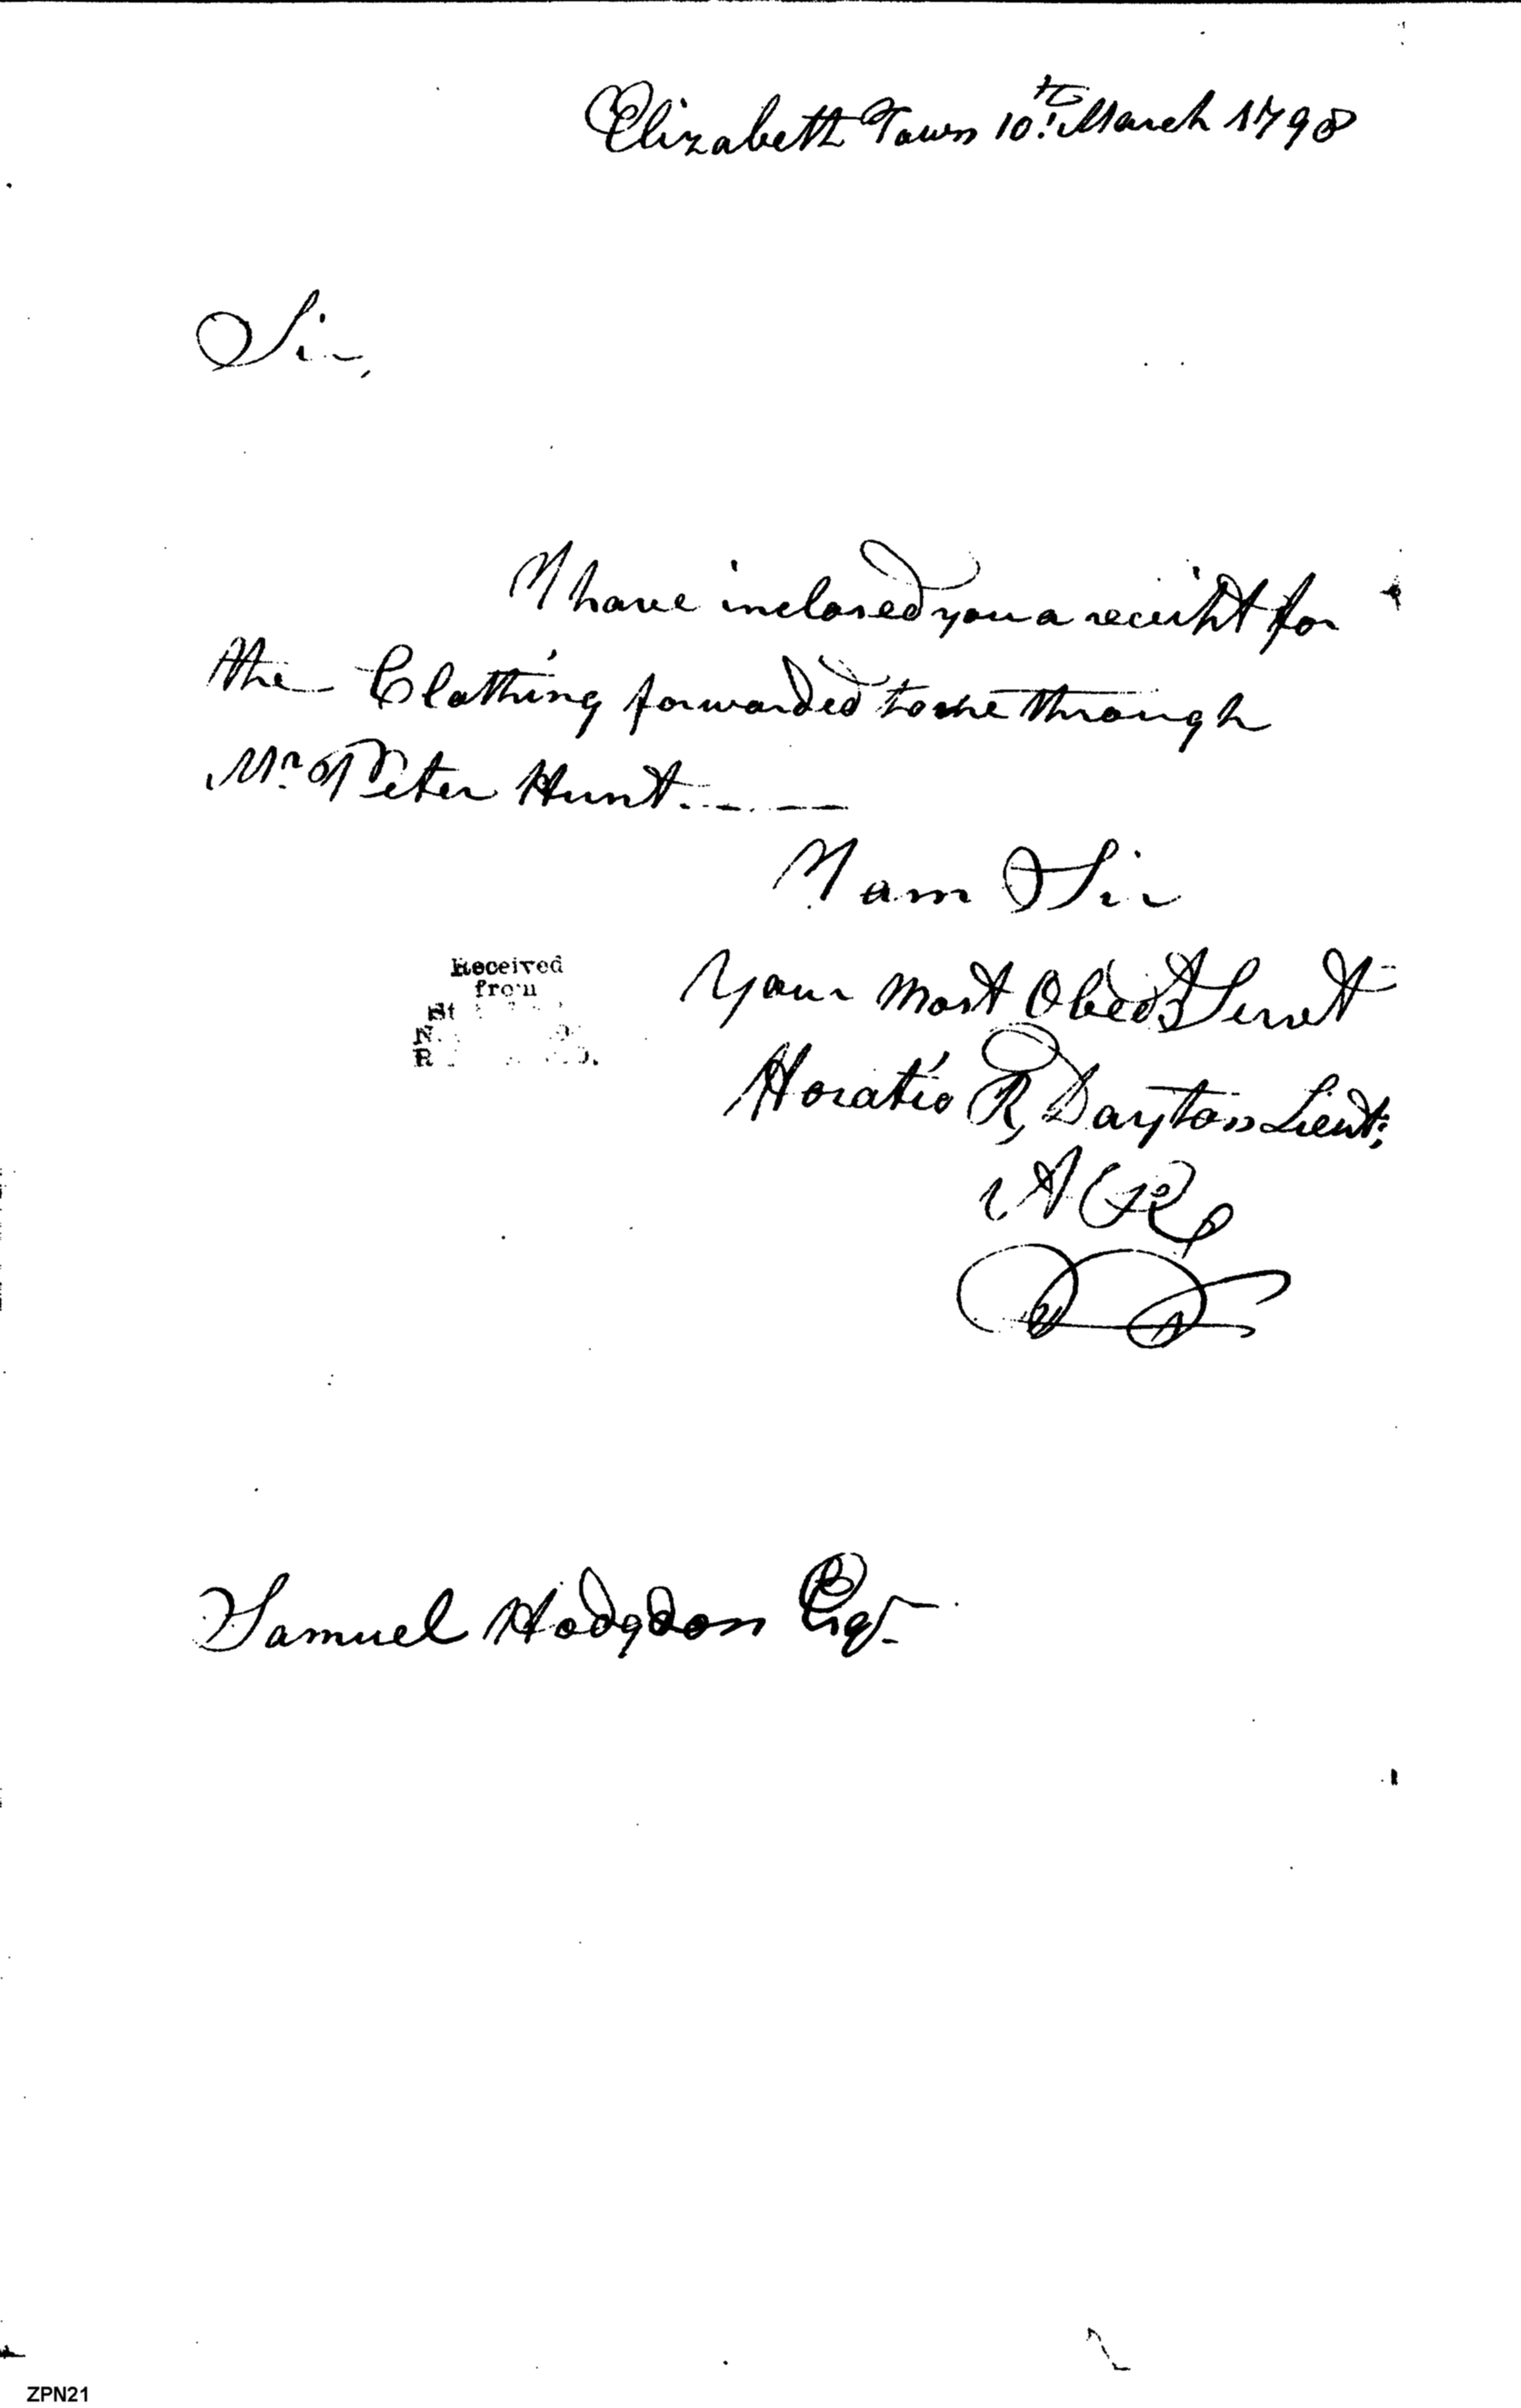 Elizabeth Town 10th. March 1798
Sir,
I have inclosed you a receipt for
the Clothing forwarded to me through
Mr. Peter Hunt.
I am Sir
Your most Obedt Servt
Horatio R, Dayton Lieut;
Received
from
Samuel Hodgdon Esqr
ZPN21